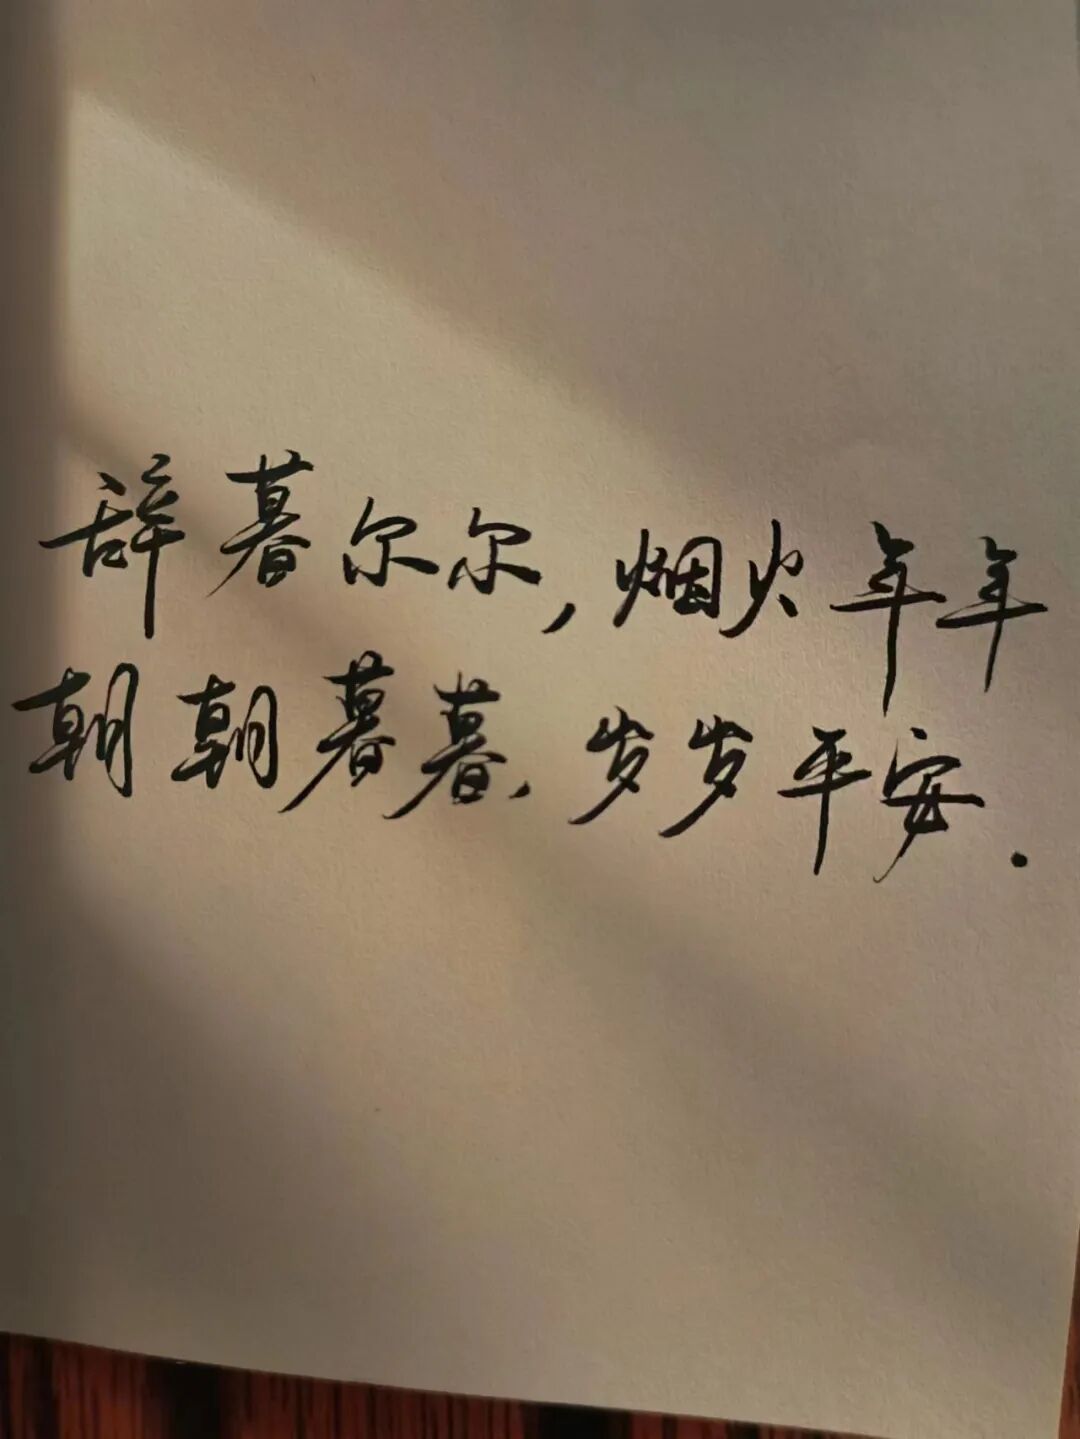 辞暮尔尔,烟火年年
朝朝暮暮,岁岁平安.